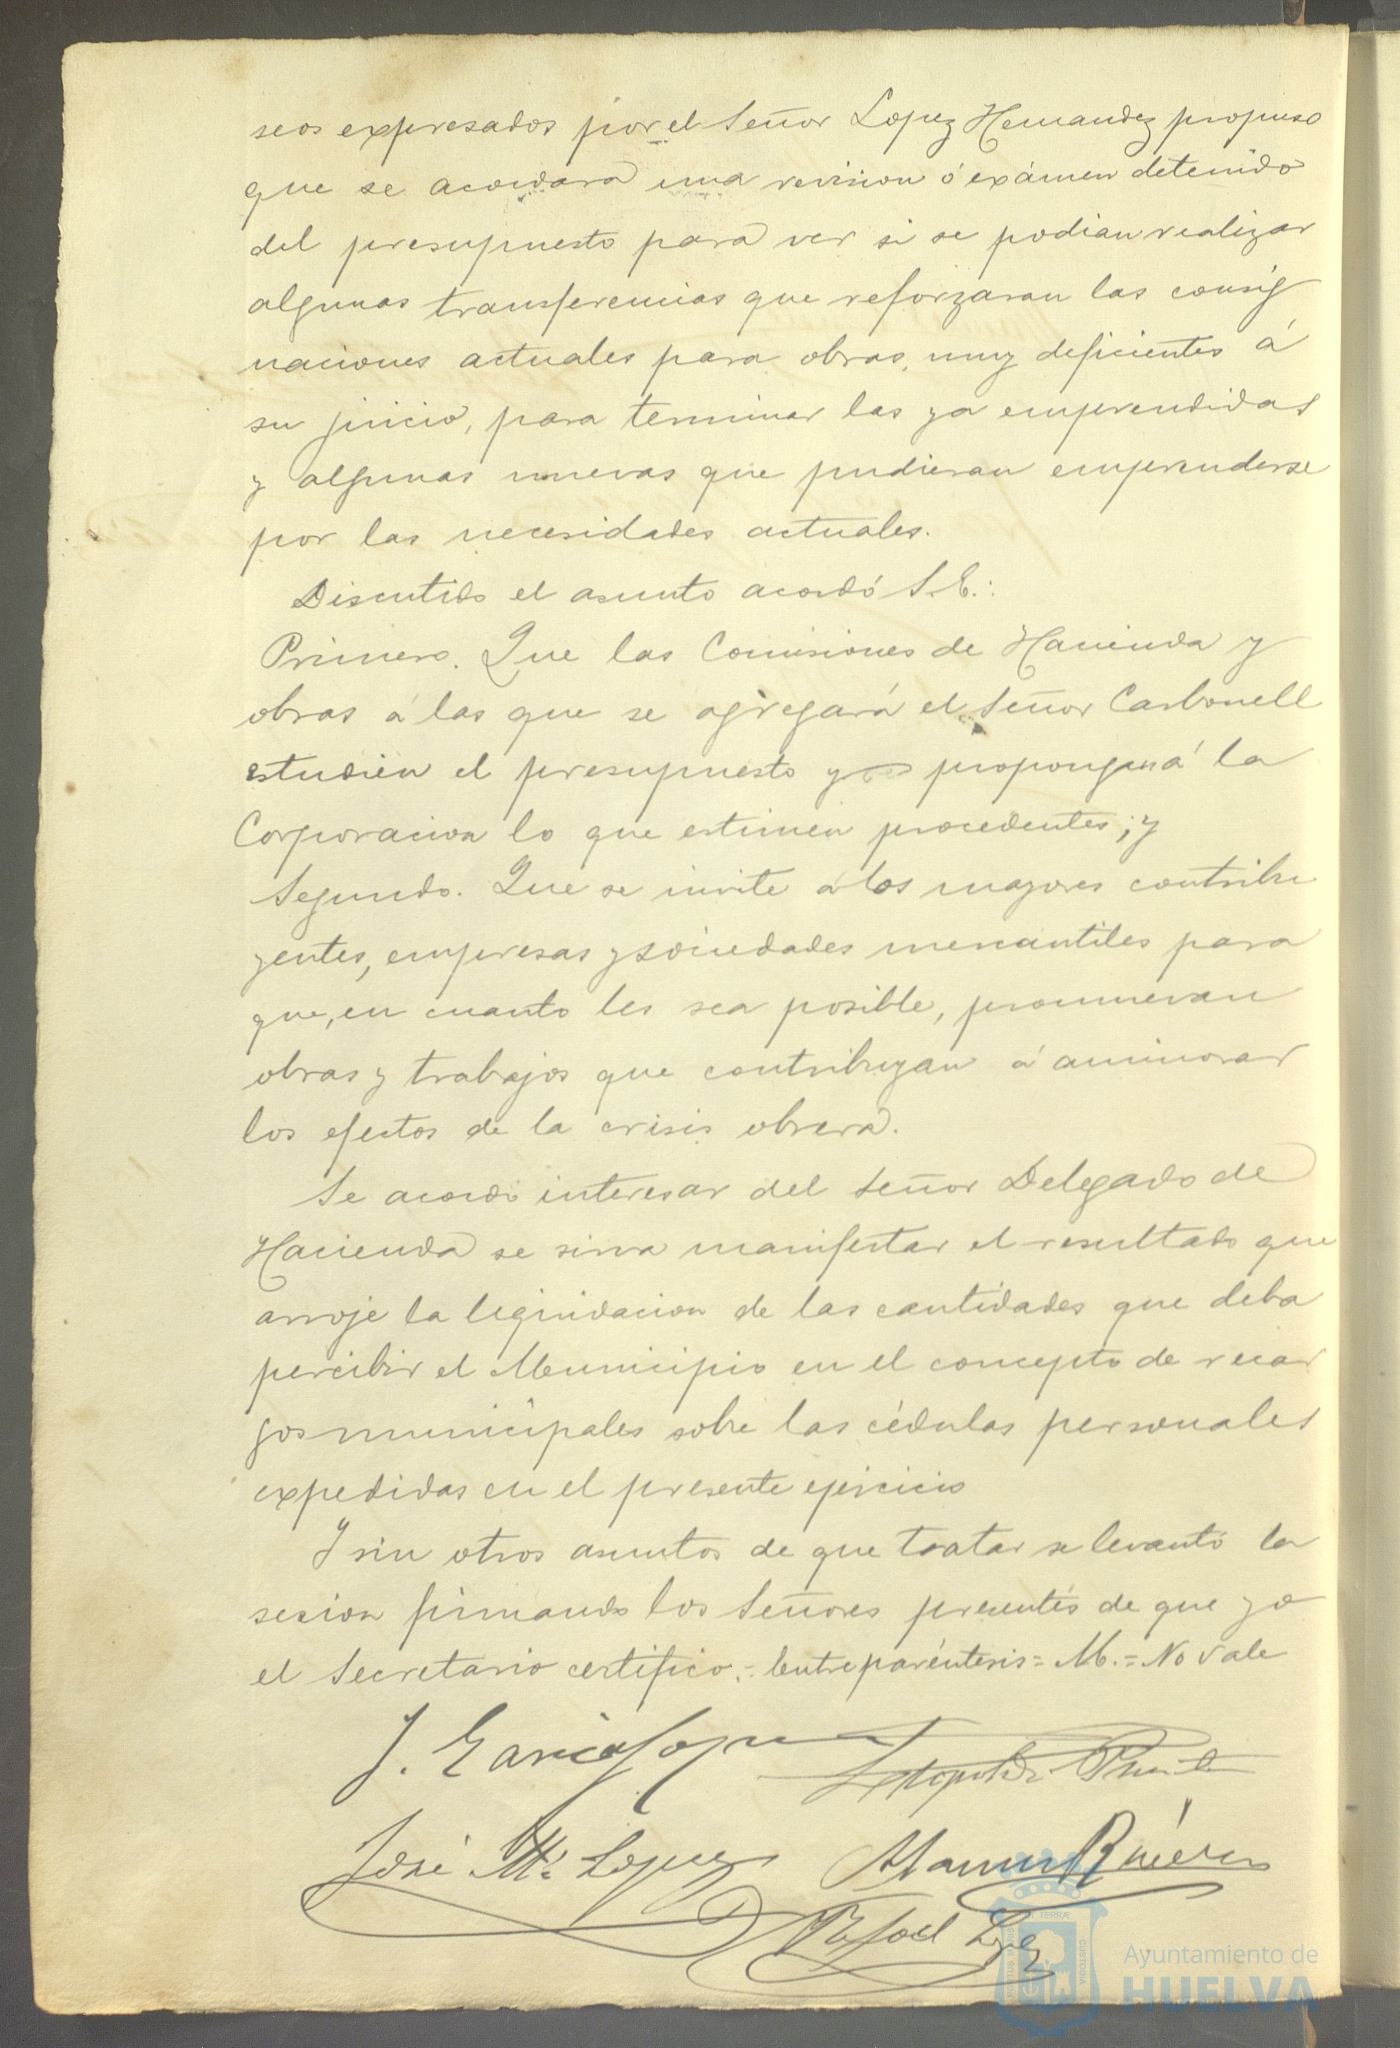 seos expresados por el Señor Lopez Hernandez propuso
que se acordara una revision ó exámen detenido
del presupuesto para ver si se podian realizar
algunas transferencias que reforzaran las consig
naciones actuales para obras, muy deficientes á
su juicio, para terminar las ya emprendidas
y algunas nuevas que pudieran emprenderse
por las necesidades actuales.
Discutido el asunto acordó S.E.:
Primero. Que las Comisiones de Hacienda y
obras á las que se agregará el Señor Carbonell
estudien el presupuesto y propongan á la
Corporacion lo que estimen procedentes; y
Segundo. Que se invite á los mayores contribu
yentes, empresas y sociedades mercantiles para
que, en cuanto les sea posible, promuevan
obras y trabajos que contribuyan á aminorar
los efectos de la crisis obrera.
Se acordó interesar del Señor Delegado de
Hacienda se sirva manifestar el resultado que
arroje la liquidacion de las cantidades que deba
percibir el Municipio en el concepto de recar
gos municipales sobre las cédulas personales
expedidas en el presente ejercicio
Y sin otros asuntos de que tratar se levantó la
sesion firmando los Señores presentes de que yo
el Secretario certifico.= Entre paréntesis = M. = No vale
J. Garcia Lopez
Leopoldo
José Mª Lopez Manuel
Rafael Lopez
CUSTODIA
TERRÆ
Ayuntamiento de
HUELVA